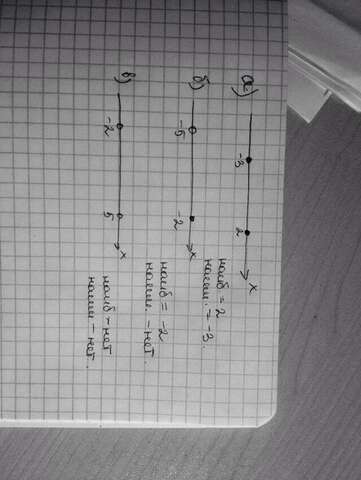 а)
-3 2 x
наиб = 2
наим. = -3.
б)
-5 -2 x
наиб = -2
наим. - нет.
в)
-2 5 x
наиб - нет
наим - нет.